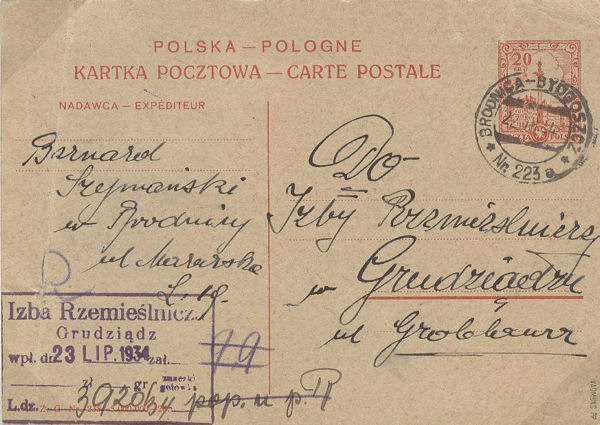 POLSKA — POLOGNE
KARTKA POCZTOWA — CARTE POSTALE
20
NADAWCA — EXPÉDITEUR
BRODNICA-BYDGOSZCZ
Nr. 223 a
Bernard
Szymański
w Brodnicy
ul Mazurska
L. 19.
Do
Izby Rzemieślniczej
w Grudziądzu
ul
R
Izba Rzemieślnicz.
Grudziądz
wpł. dn. 23 LIP. 1934 zał.
zł gr znaczki
gotówka
L.dz. 3920/34 pop. u p.